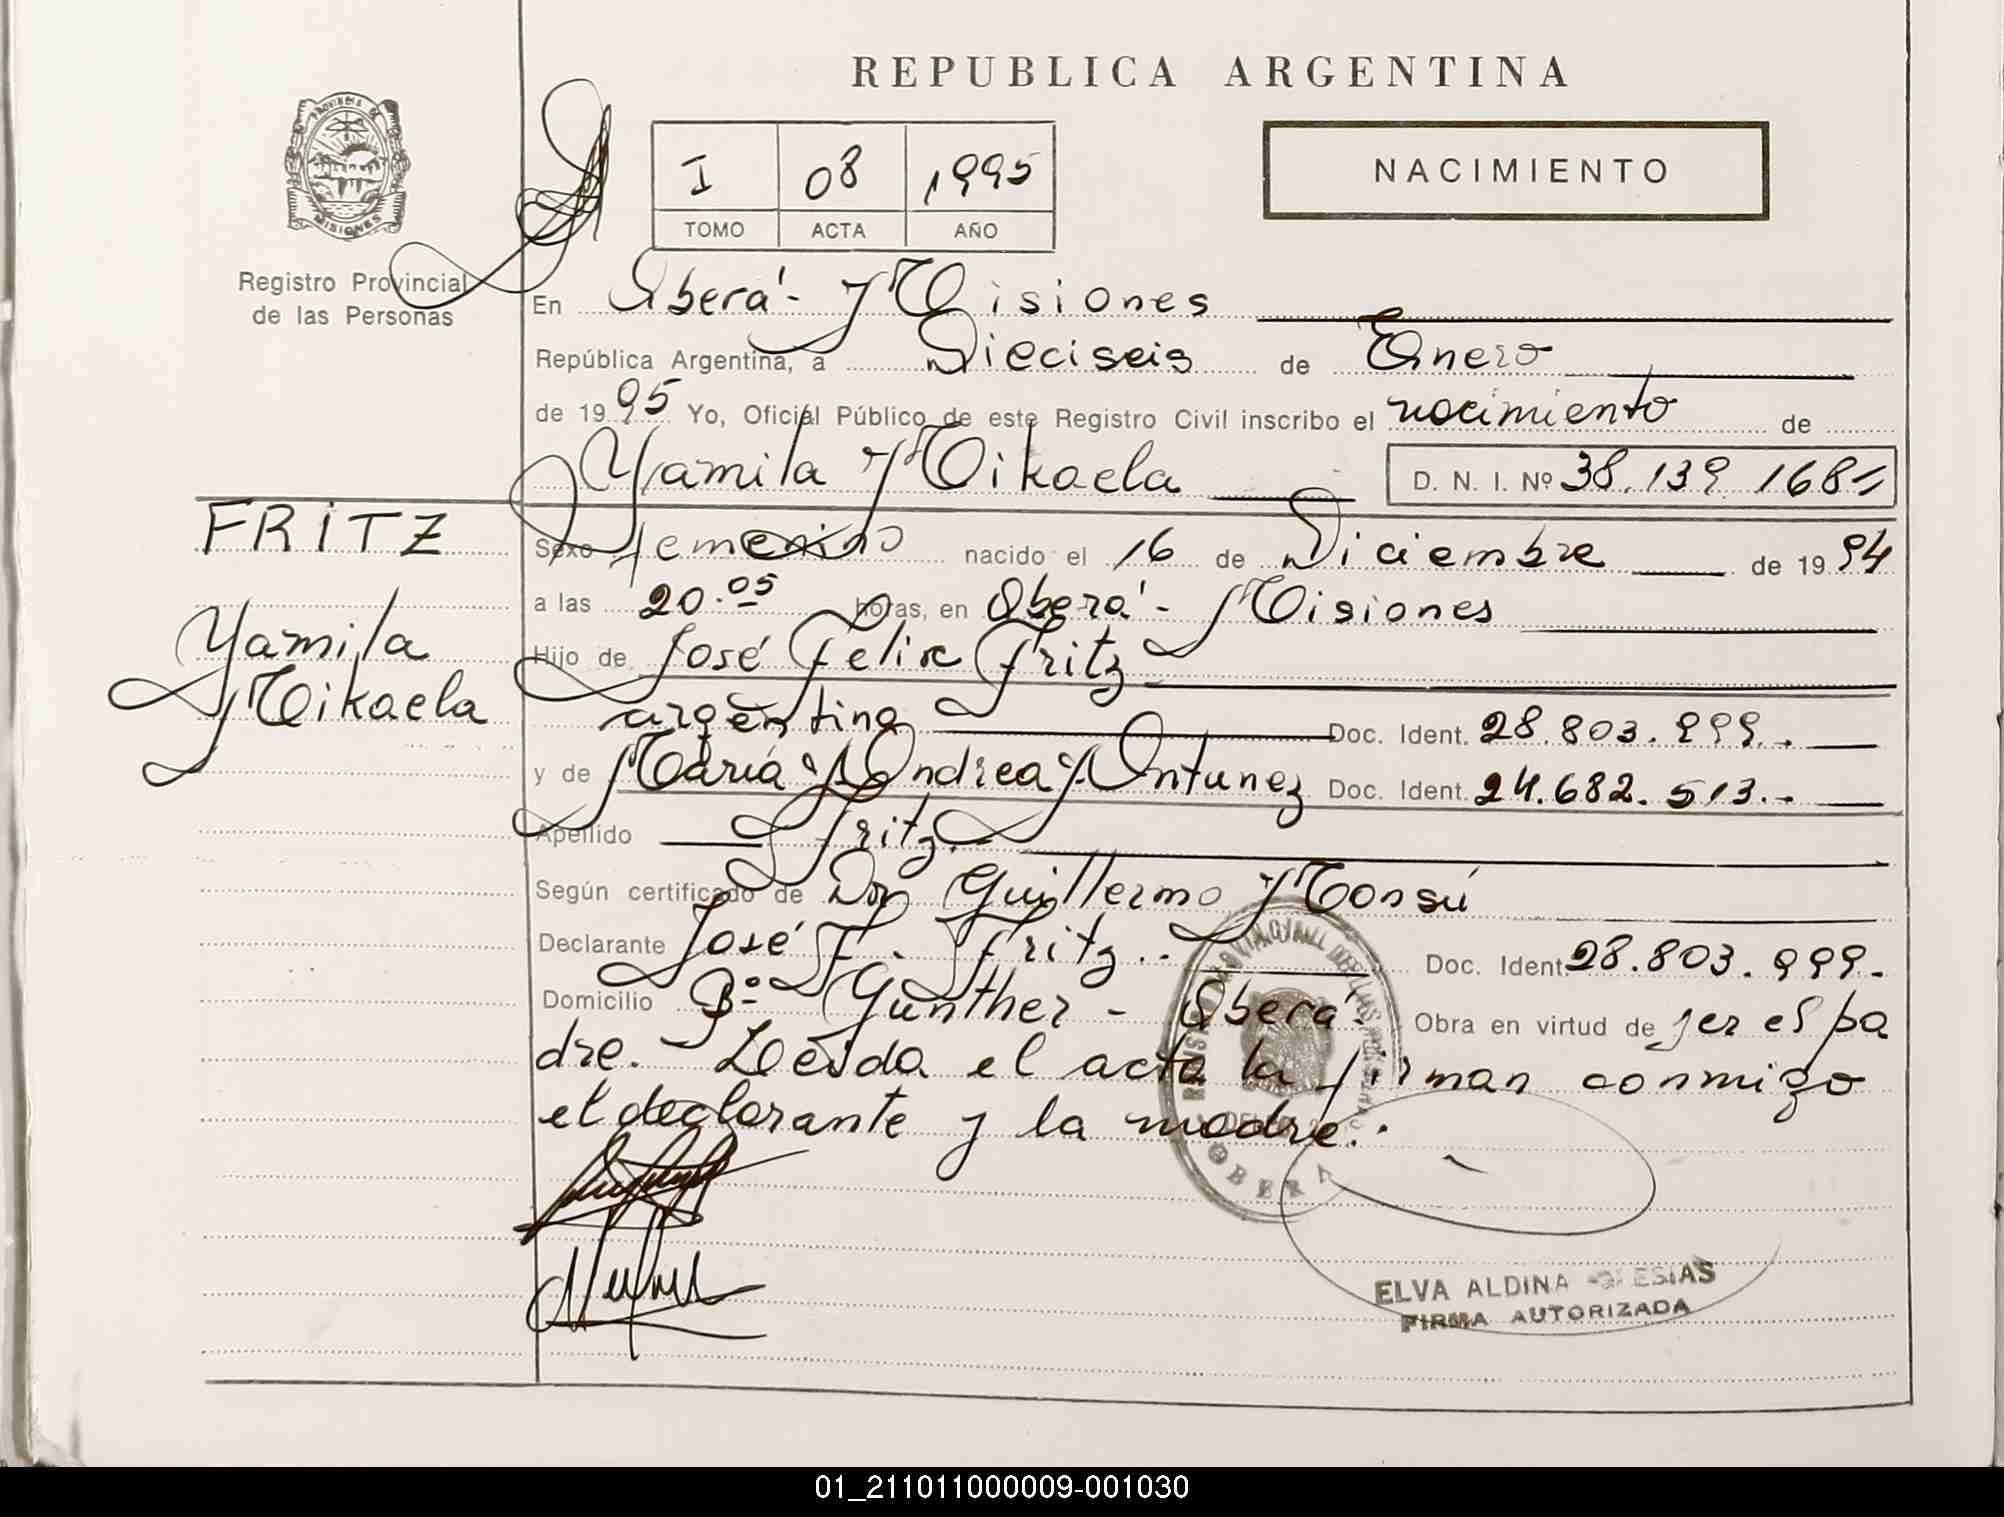 REPUBLICA ARGENTINA
PROVINCIA DE MISIONES
Registro Provincial
de las Personas
I 08 1995
TOMO ACTA AÑO
NACIMIENTO
En Oberá - Misiones
República Argentina, a Dieciseis de Enero
de 1995 Yo, Oficial Público de este Registro Civil inscribo el nacimiento de
Yamila Mikaela D. N. I. Nº 38.139.168
FRITZ
Yamila
Mikaela
Sexo femenino nacido el 16 de Diciembre de 1994
a las 20.05 horas, en Oberá - Misiones
Hijo de José Felix Fritz
argentina Doc. Ident. 28.803.999.-
y de María Andrea Antunez Doc. Ident. 24.682.513.-
Apellido Fritz.-
Según certificado de Dr Guillermo Monsú
Declarante José F. Fritz.- Doc. Ident. 28.803.999.-
Domicilio Bº Günther - Oberá.- Obra en virtud de ser el pa
dre.- Leida el acta la firman conmigo
el declarante y la madre.-
OBERA
ELVA ALDINA IGLESIAS
FIRMA AUTORIZADA
01_211011000009-001030